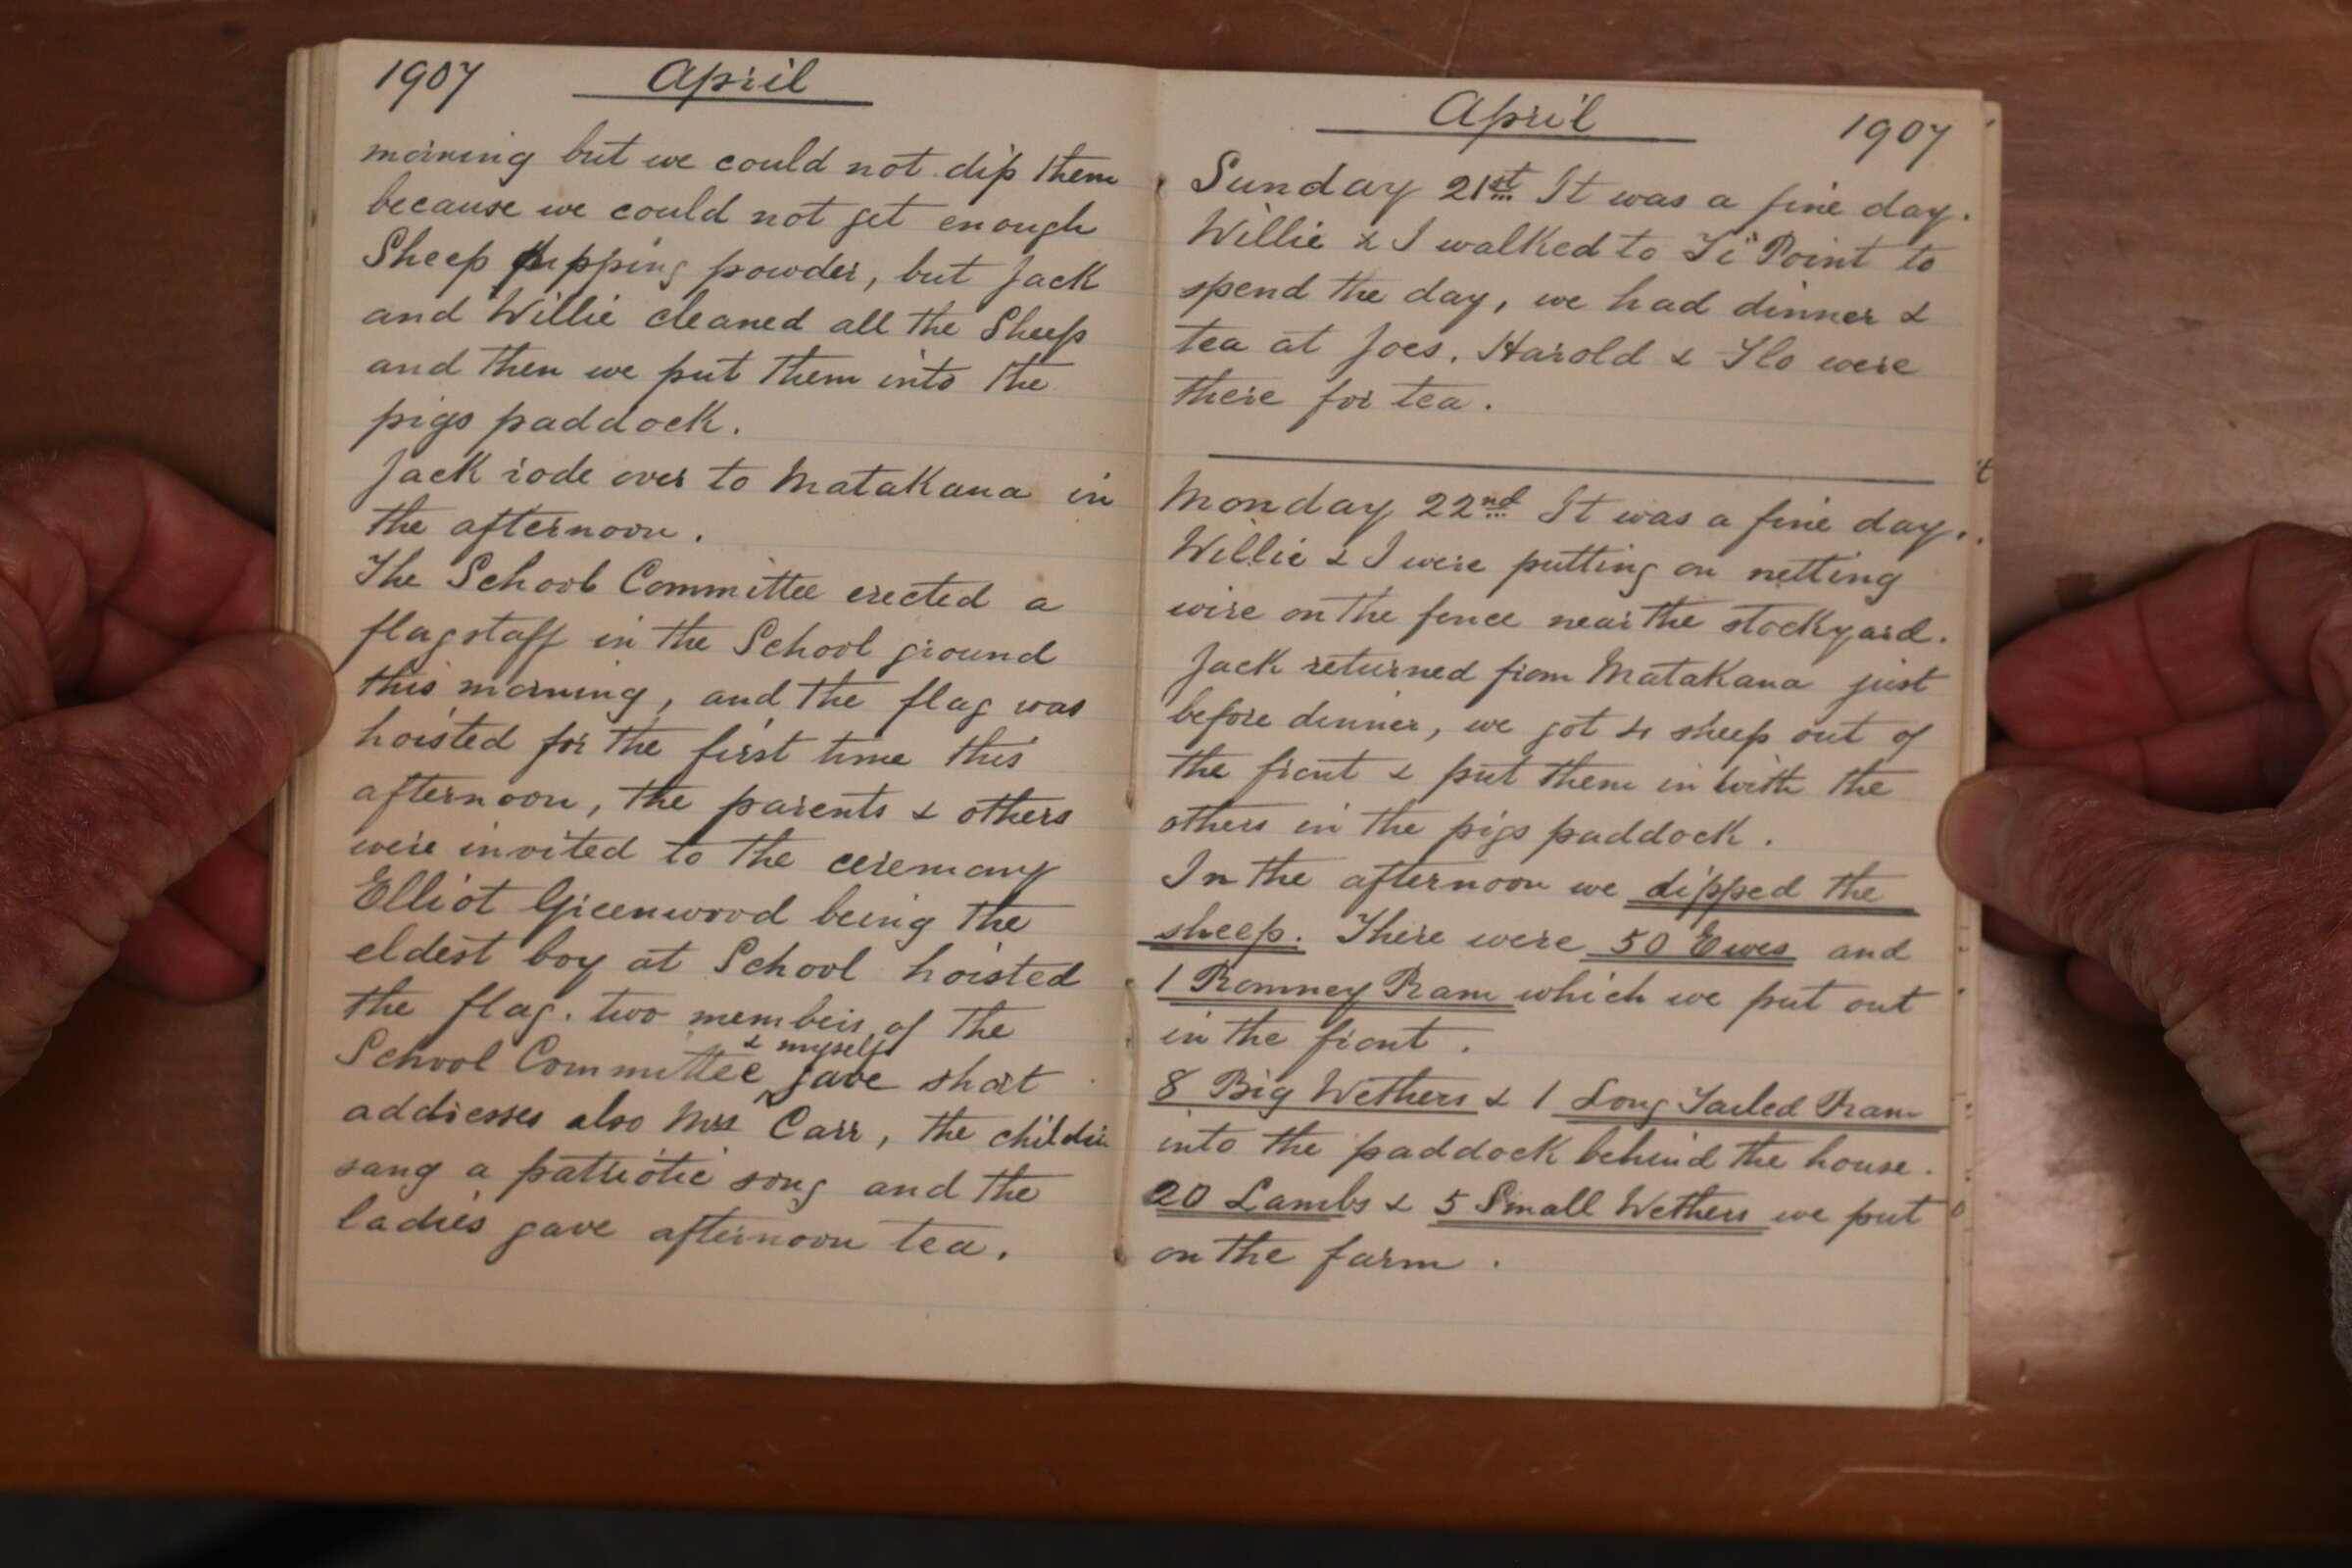 1907 April
morning but we could not dip them
because we could not get enough
Sheep dipping powder, but Jack
and Willie cleaned all the Sheep
and then we put them into the
pigs paddock.
Jack rode over to Matakana in
the afternoon.
The School Committee erected a
flagstaff in the School ground
this morning, and the flag was
hoisted for the first time this
afternoon, the parents & others
were invited to the ceremony
Elliot Greenwood being the
eldest boy at School hoisted
the flag. two members of the
& myself
School Committee gave short
addresses also Mrs Carr, the children
sang a patriotic song and the
ladies gave afternoon tea.
April 1907
Sunday 21st It was a fine day.
Willie & I walked to Ti Point to
spend the day, we had dinner &
tea at Joes. Harold & Flo were
there for tea.
Monday 22nd It was a fine day.
Willie & I were putting on netting
wire on the fence near the stockyard.
Jack returned from Matakana just
before dinner, we got 4 sheep out of
the front & put them in with the
others in the pigs paddock.
In the afternoon we dipped the
sheep. There were 50 Ewes and
1 Romney Ram which we put out
in the front.
8 Big Wethers & 1 Long Tailed Ram
into the paddock behind the house.
20 Lambs & 5 Small Wethers we put
on the farm.